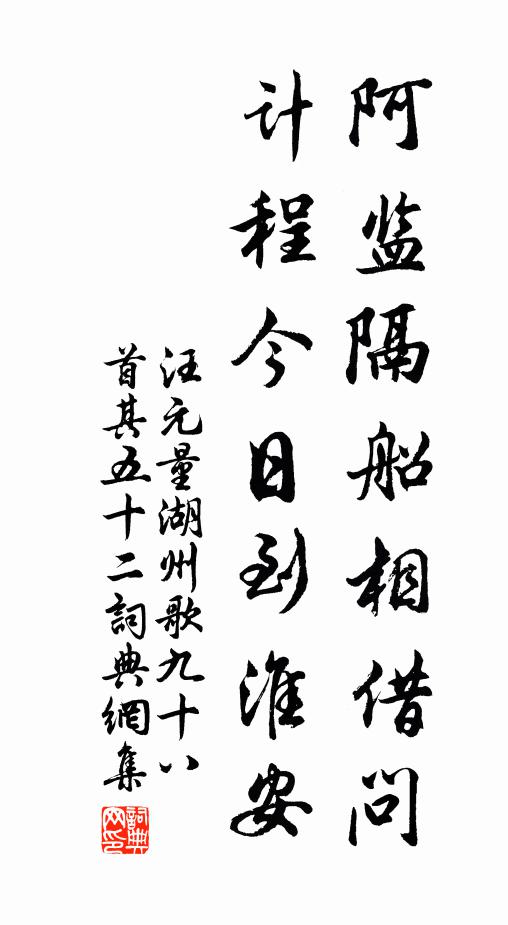 阿监隔船相借问
计程今日到淮安
汪元量湖州歌九十八
首其五十二詞典網集
詞典
网印